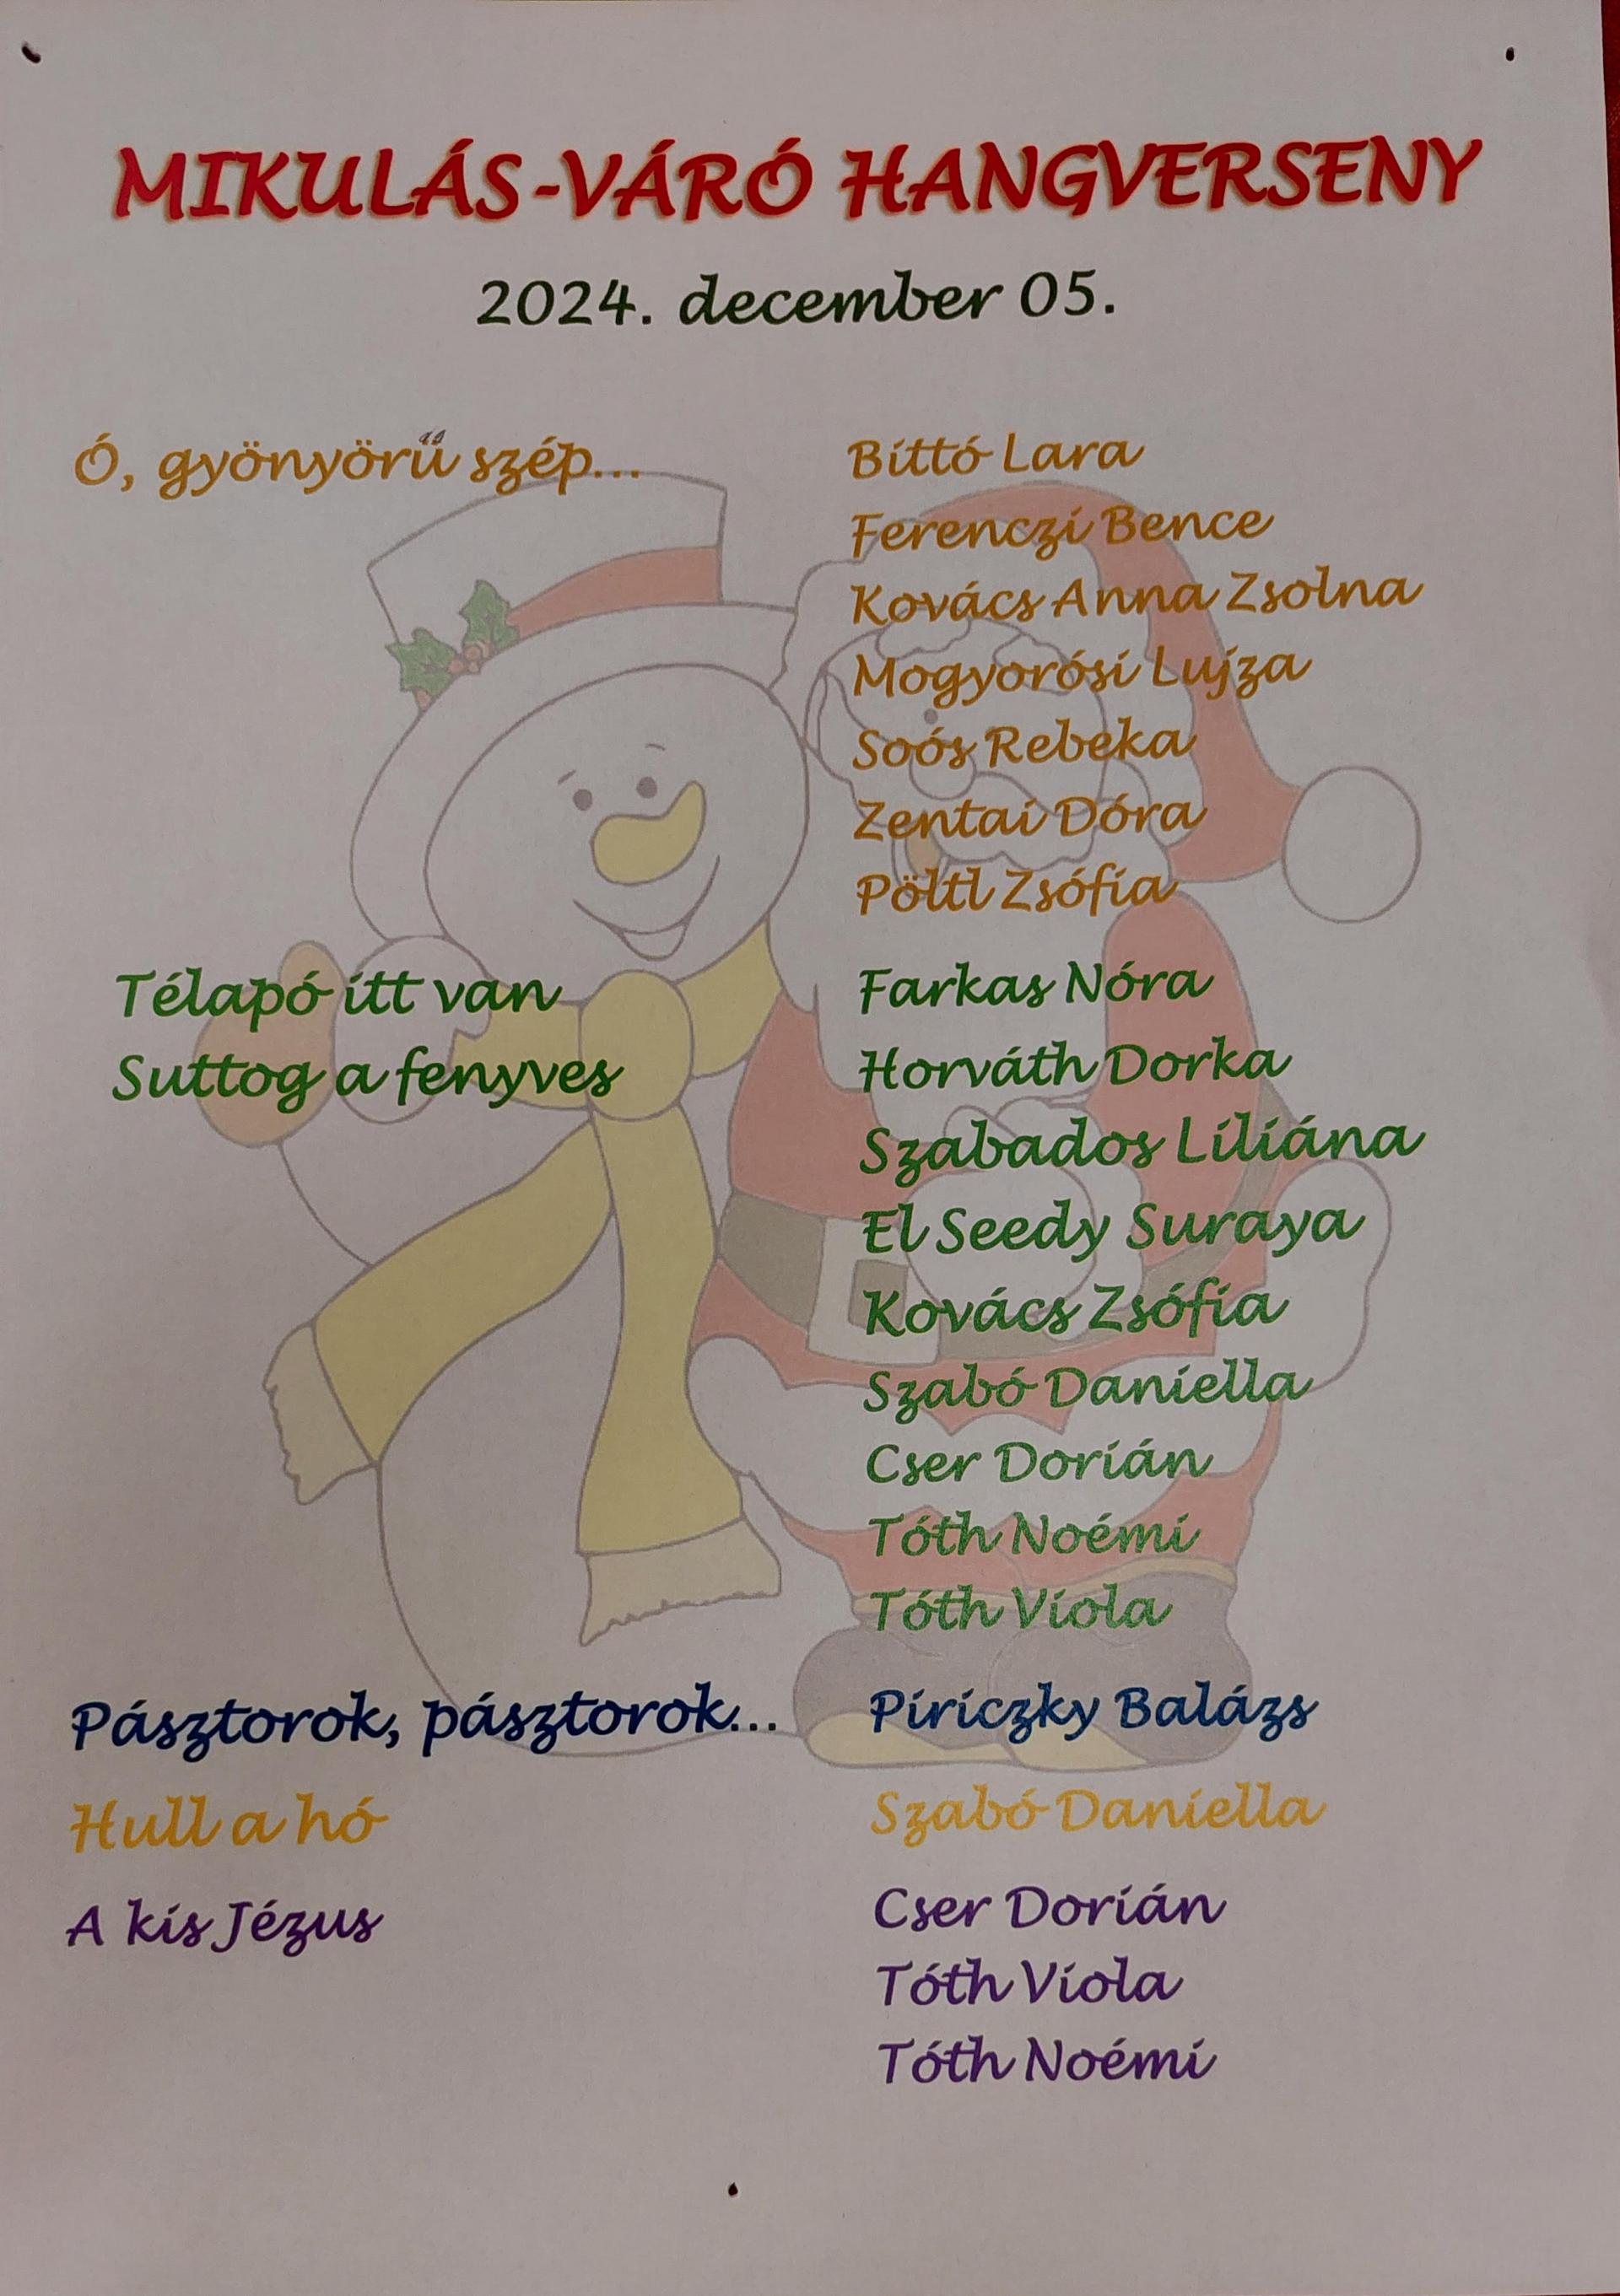 MIKULÁS-VÁRÓ HANGVERSENY
2024. december 05.
Ó, gyönyörű szép... Bittó Lara
Ferenczi Bence
Kovács Anna Zsolna
Mogyorósi Lujza
Soós Rebeka
Zentai Dóra
Pöltl Zsófia
Télapó itt van Farkas Nóra
Suttog a fenyves Horváth Dorka
Szabados Liliána
El Seedy Suraya
Kovács Zsófia
Szabó Daniella
Cser Dorián
Tóth Noémi
Tóth Viola
Pásztorok, pásztorok... Piriczky Balázs
Hull a hó Szabó Daniella
A kis Jézus Cser Dorián
Tóth Viola
Tóth Noémi